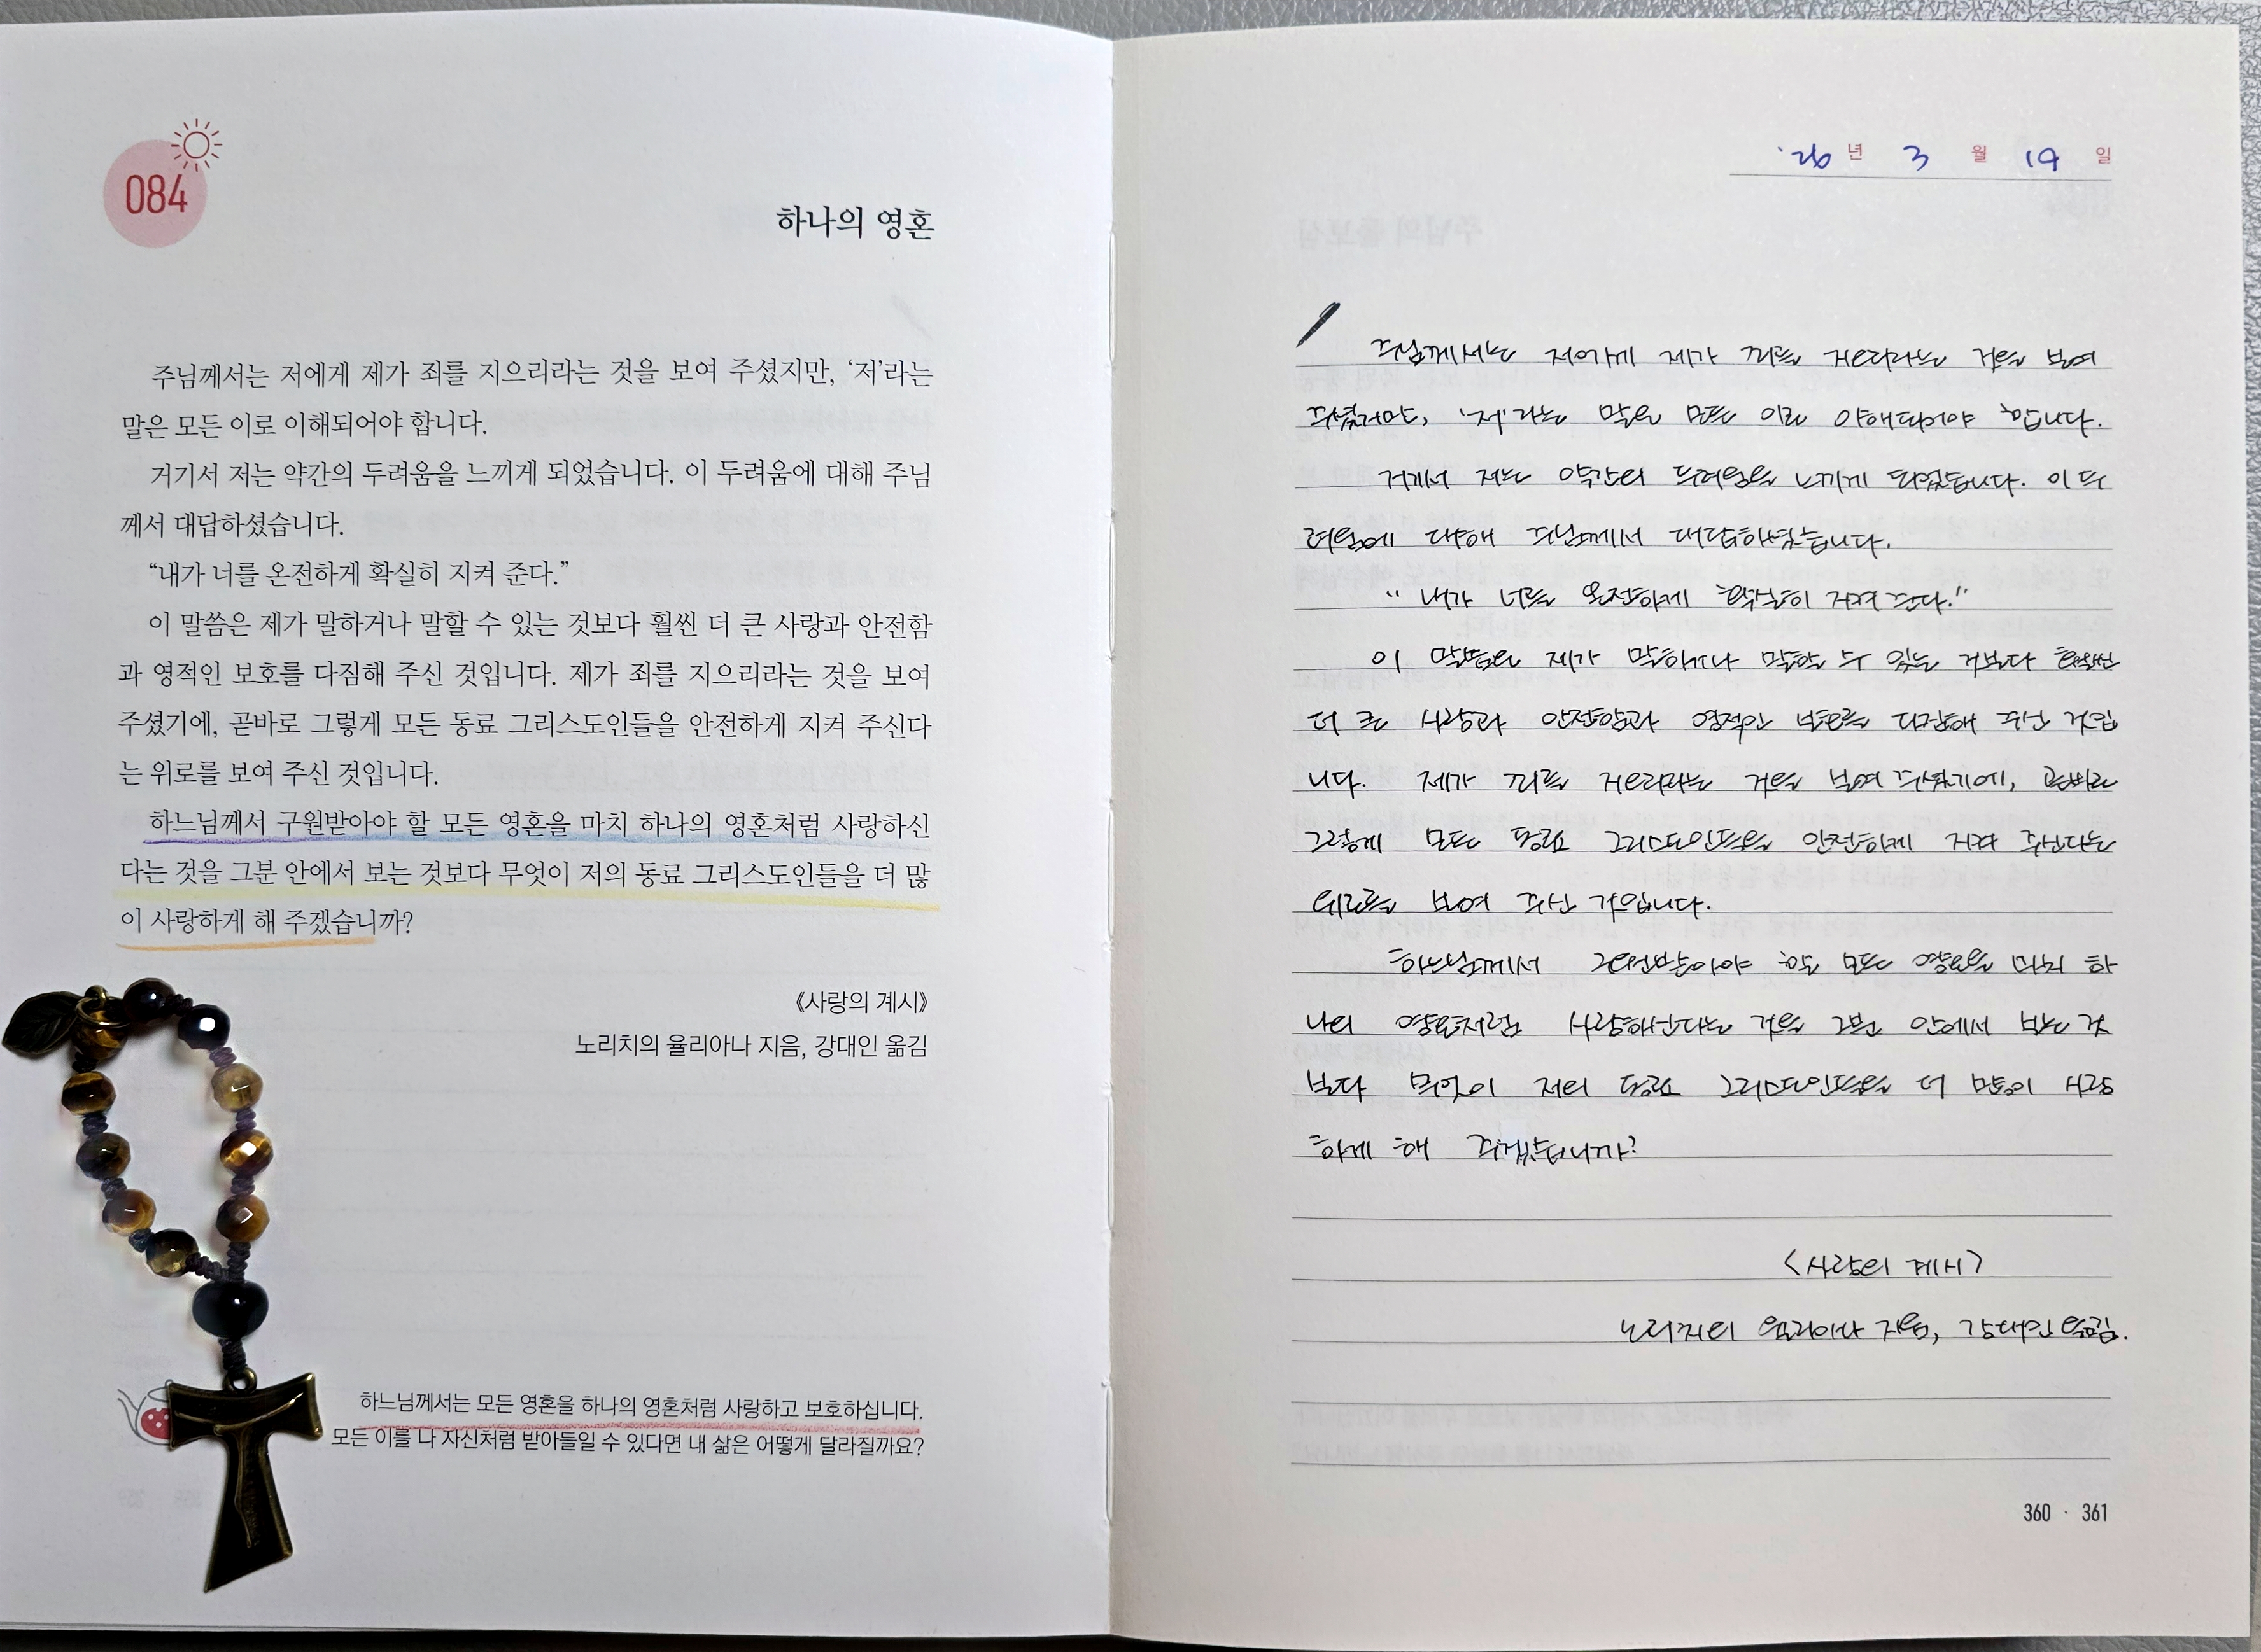 084
하나의 영혼
주님께서는 저에게 제가 죄를 지으리라는 것을 보여 주셨지만, ‘저’라는
말은 모든 이로 이해되어야 합니다.
거기서 저는 약간의 두려움을 느끼게 되었습니다. 이 두려움에 대해 주님
께서 대답하셨습니다.
“내가 너를 온전하게 확실히 지켜 준다.”
이 말씀은 제가 말하거나 말할 수 있는 것보다 훨씬 더 큰 사랑과 안전함
과 영적인 보호를 다짐해 주신 것입니다. 제가 죄를 지으리라는 것을 보여
주셨기에, 곧바로 그렇게 모든 동료 그리스도인들을 안전하게 지켜 주신다
는 위로를 보여 주신 것입니다.
하느님께서 구원받아야 할 모든 영혼을 마치 하나의 영혼처럼 사랑하신
다는 것을 그분 안에서 보는 것보다 무엇이 저의 동료 그리스도인들을 더 많
이 사랑하게 해 주겠습니까?
《사랑의 계시》
노리치의 율리아나 지음, 강대인 옮김
하느님께서는 모든 영혼을 하나의 영혼처럼 사랑하고 보호하십니다.
모든 이를 나 자신처럼 받아들일 수 있다면 내 삶은 어떻게 달라질까요?
'26 년 3 월 19 일
주님께서는 저에게 제가 죄를 지으리라는 것을 보여
주셨지만, '저'라는 말은 모든 이로 이해되어야 합니다.
거기서 저는 약간의 두려움을 느끼게 되었습니다. 이 두
려움에 대해 주님께서 대답하셨습니다.
"내가 너를 온전하게 확실히 지켜 준다."
이 말씀은 제가 말하거나 말할 수 있는 것보다 훨씬
더 큰 사랑과 안전함과 영적인 보호를 다짐해 주신 것입
니다. 제가 죄를 지으리라는 것을 보여 주셨기에, 곧바로
그렇게 모든 동료 그리스도인들을 안전하게 지켜 주신다는
위로를 보여 주신 것입니다.
하느님께서 구원받아야 할 모든 영혼을 마치 하
나의 영혼처럼 사랑하신다는 것을 그분 안에서 보는 것
보다 무엇이 저의 동료 그리스도인들을 더 많이 사랑
하게 해 주겠습니까?
<사랑의 계시>
노리치의 율리아나 지음, 강대인 옮김.
360 · 361